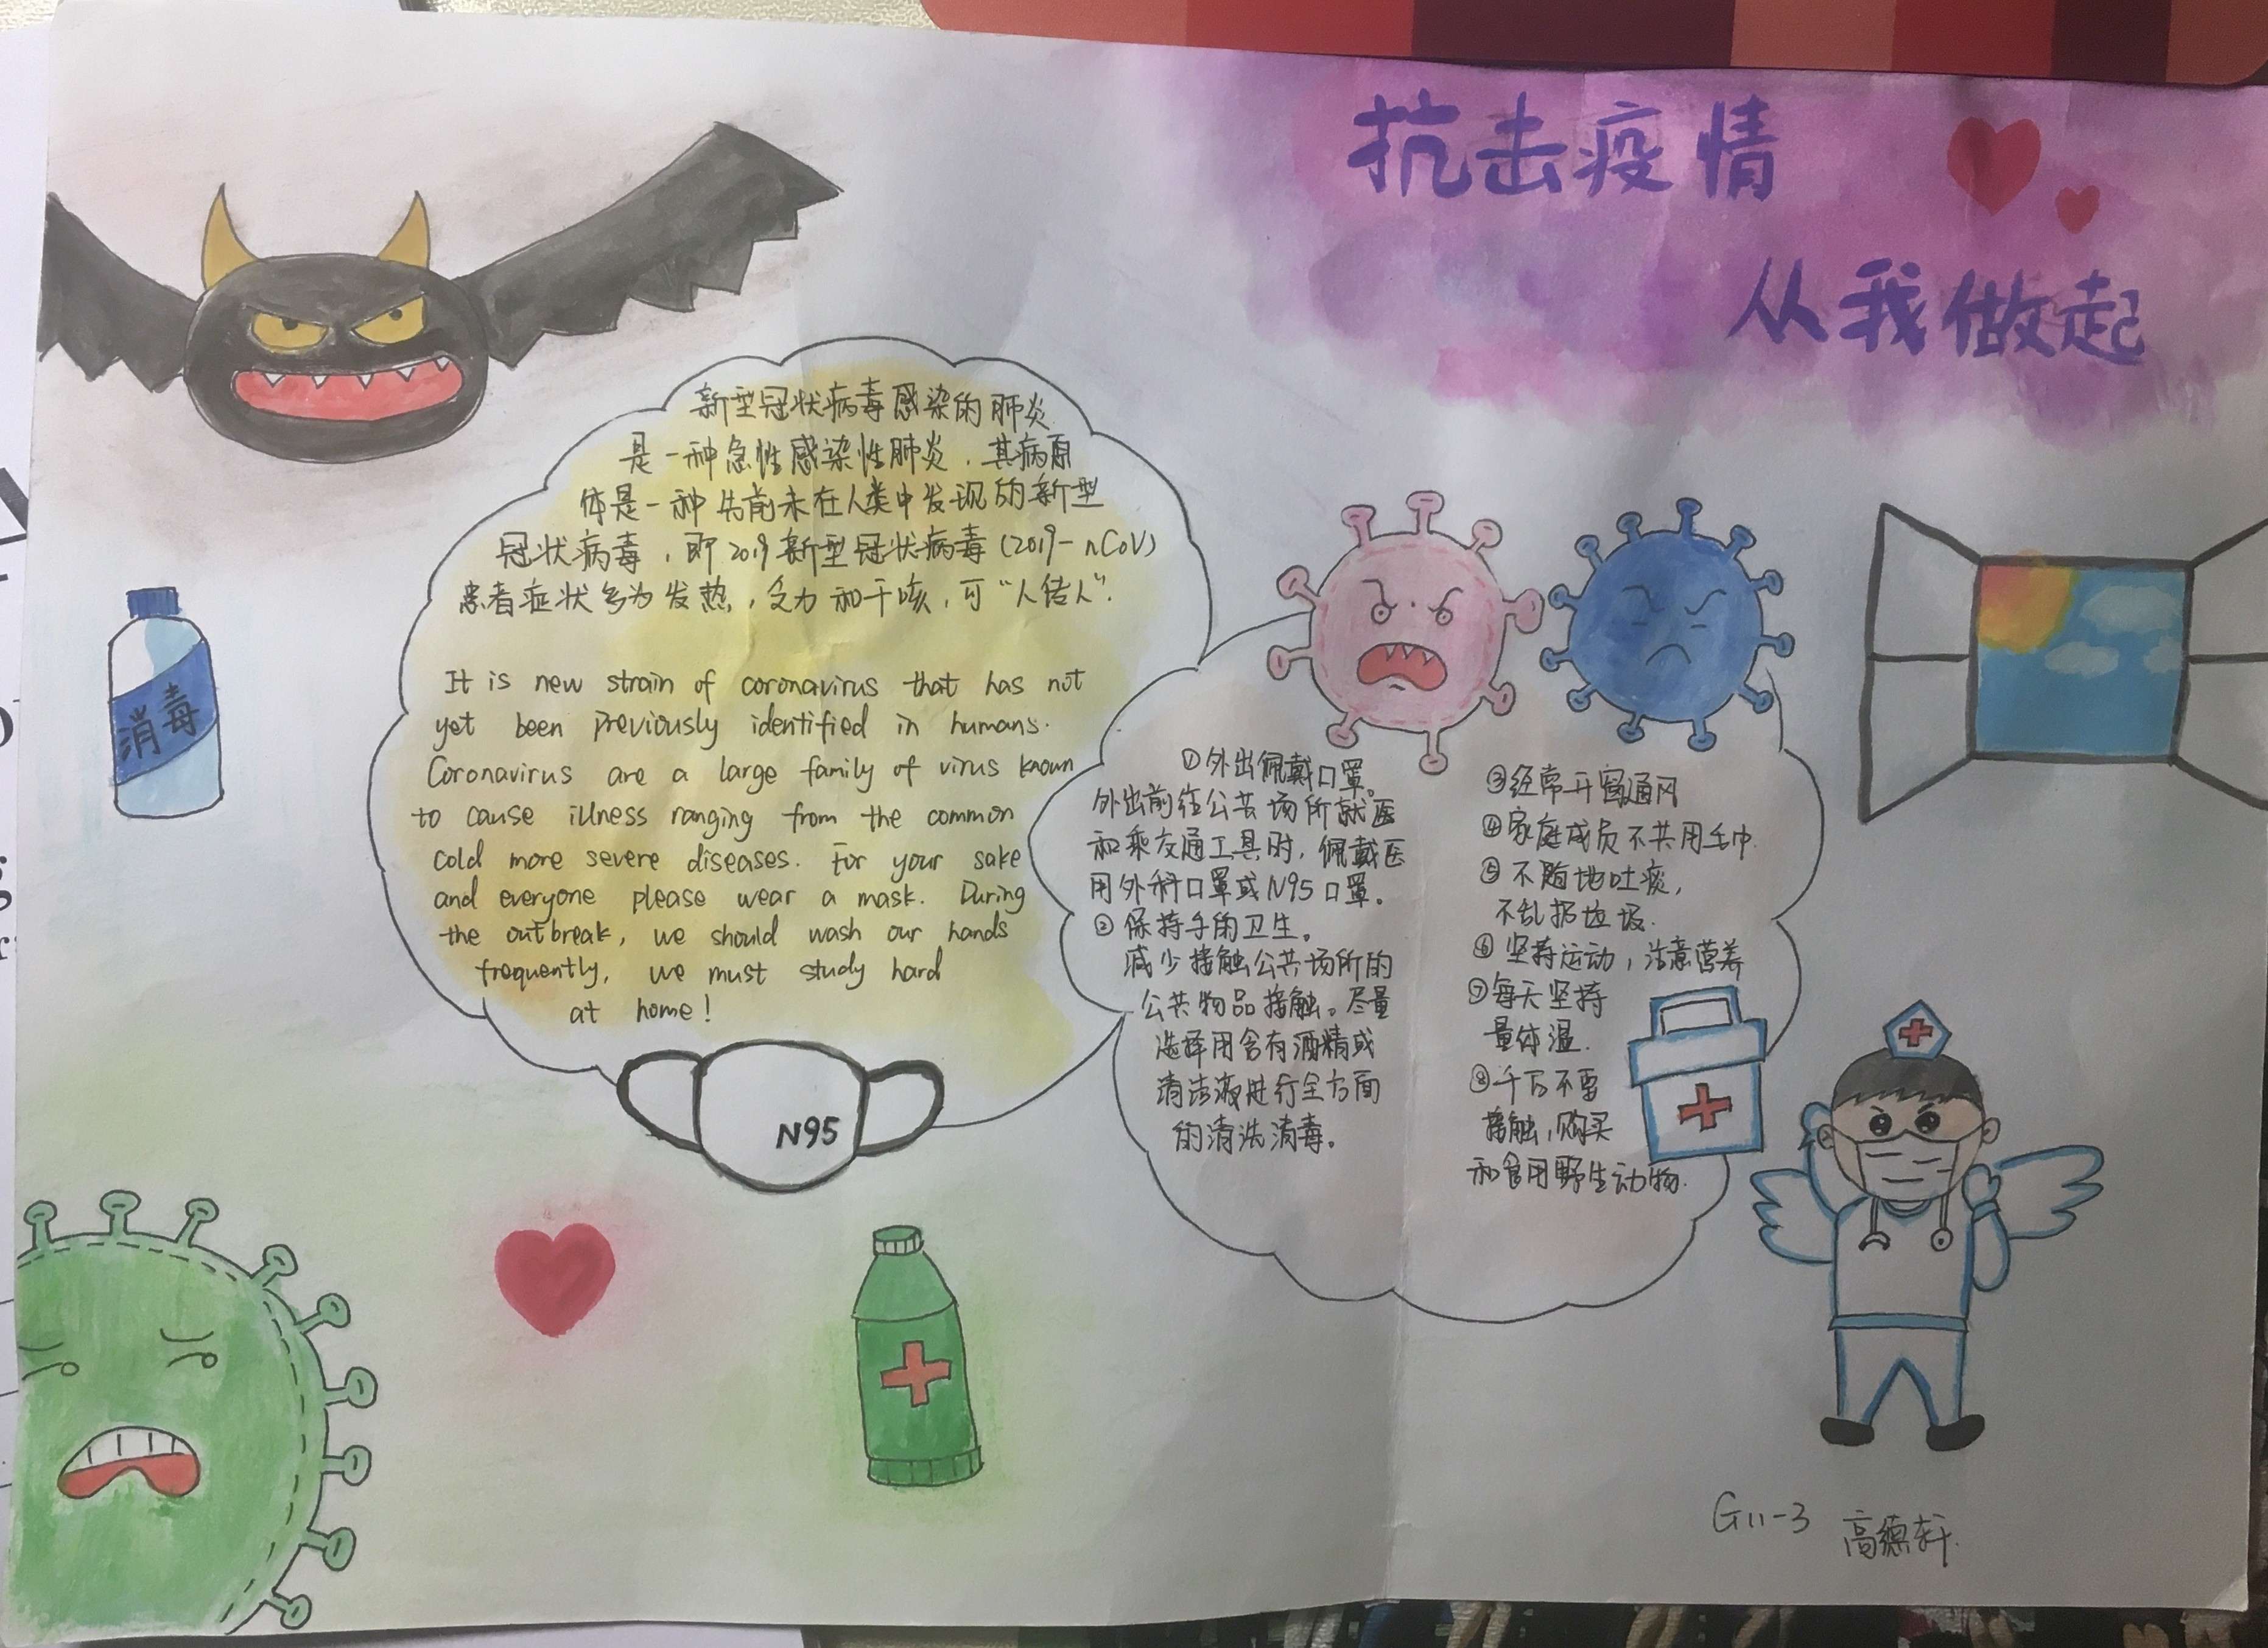 抗击疫情
从我做起
新型冠状病毒感染的肺炎
是一种急性感染性肺炎，其病原
体是一种先前未在人类中发现的新型
冠状病毒，即2019新型冠状病毒(2019-nCoV)
患者症状多为发热，乏力和干咳，可“人传人”.
It is new strain of coronavirus that has not
yet been previously identified in humans.
Coronavirus are a large family of virus known
to cause illness ranging from the common
cold more severe diseases. For your sake
and everyone please wear a mask. During
the outbreak, we should wash our hands
frequently, we must study hard
at home!
消毒
N95
①外出佩戴口罩。
外出前往公共场所就医
和乘交通工具时，佩戴医
用外科口罩或N95口罩。
②保持手的卫生。
减少接触公共场所的
公共物品接触。尽量
选择用含有酒精或
清洁液进行全方面
的清洗消毒。
③经常开窗通风
④家庭成员不共用毛巾.
⑤不随地吐痰，
不乱扔垃圾.
⑥坚持运动，注意营养
⑦每天坚持
量体温.
⑧千万不要
接触，购买
和食用野生动物.
G11-3 高德轩.